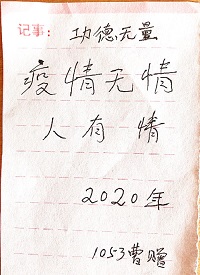 记事: 功德无量
疫情无情
人有情
2020年
1053曹赠